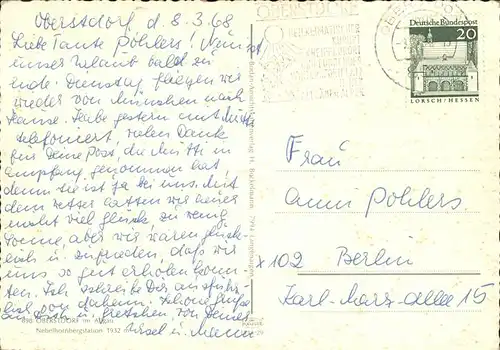 Oberstdorf d. 8.3.68
Liebe Tante Pohlers! Nun ist
unser Urlaub bald zu
ende. Dienstag fliegen wir
wieder von München nach
Hause. Habe gestern mit Mutti
telefoniert, vielen Dank
für Deine Post, die Mutti in
Empfang genommen hat,
denn sie ist ja bei uns. Mit
dem Wetter hatten wir heuer
nicht viel Glück, zu wenig
Sonne, aber wir waren glück-
lich u. zufrieden, daß wir
uns so gut erholen konn-
ten. Ich schreibe Dir ausführ-
lich von daheim. Schöne Grüße
von Deiner
Ursel u. Mann
898 OBERSTDORF im Allgäu
Nebelhornbergstation 1932 m
OBERSTDORF
HEILKLIMATISCHER
KURORT
Deutsche Bundespost
20
LORSCH/HESSEN
Frau
Anni Pohlers
x 102 Berlin
Karl-Marx-Allee 15